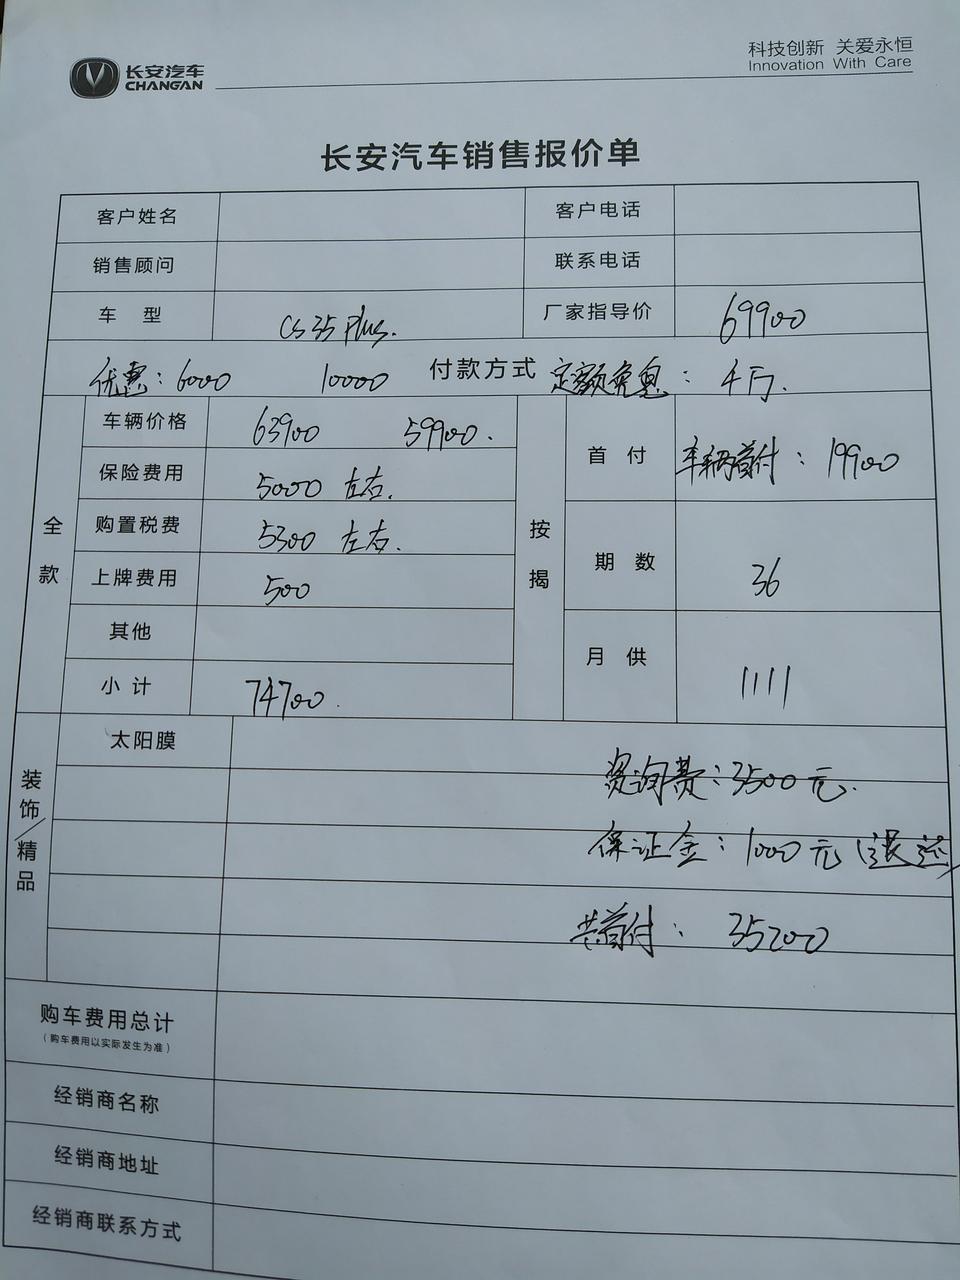 长安汽车
CHANGAN
科技创新 关爱永恒
Innovation With Care
长安汽车销售报价单
客户姓名 客户电话
销售顾问 联系电话
车 型 CS35 Plus. 厂家指导价 69900
优惠：6000 10000 付款方式 定额免息：4万.
全款
车辆价格 63900 59900.
保险费用 5000 左右.
购置税费 5300 左右.
上牌费用 500
其他
小计 74700.
按揭
首 付 车辆首付：19900
期 数 36
月 供 1111
装饰/精品
太阳膜
资询费：3500元.
保证金：1000元（退还
共首付：35200
购车费用总计
（购车费用以实际发生为准）
经销商名称
经销商地址
经销商联系方式